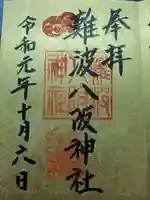 奉拝
難波八阪神社
令和元年十月六日